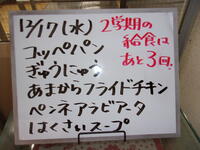 12/17(水)
コッペパン
ぎゅうにゅう
あまからフライドチキン
ペンネアラビアータ
はくさいスープ
2学期の
給食は
あと3回.